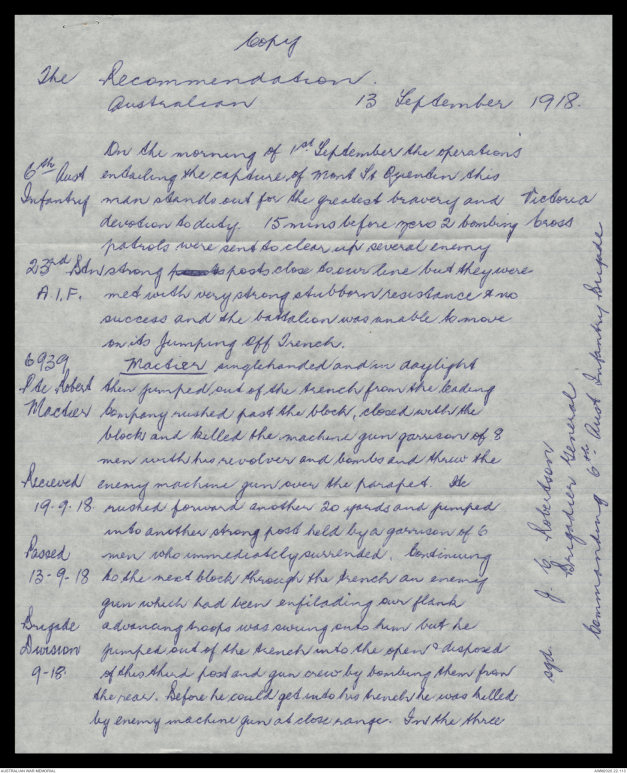 Copy
The Recommendation.
Australian 13 September 1918.
On the morning of 1st September the operations
6th Aust entailing the capture of Mont St Quentin this
Infantry man stands out for the greatest bravery and Victoria
devotion to duty. 15 mins before zero 2 bombing Cross
patrols were sent to clear up several enemy
23rd Btn strong posts close to our line but they were
A.I.F. met with very strong stubborn resistance & no
success and the battalion was unable to move
on its Jumping Off Trench.
6939 Mactier singlehanded and in daylight
Pte Robert then jumped out of the trench from the leading
Mactier Company rushed past the block, closed with the
block and killed the machine gun garrison of 8
men with his revolver and bombs and threw the
Recieved enemy machine gun over the parapet. He
19-9-18. rushed forward another 20 yards and jumped
into another strong post held by a garrison of 6
Passed men who immediately surrended. Continuing
13-9-18 to the next block through the trench an enemy
gun which had been enfilading our flank
Brigade advancing troops was swung onto him but he
Division jumped out of the trench into the open & disposed
9-18. of this third post and gun crew by bombing them from
the rear. Before he could get into his trench he was killed
by enemy machine gun at close range. In the three
sgd. J. C. Robertson
Brigadier General.
Commanding 6th Aust Infantry Brigade
AUSTRALIAN WAR MEMORIAL